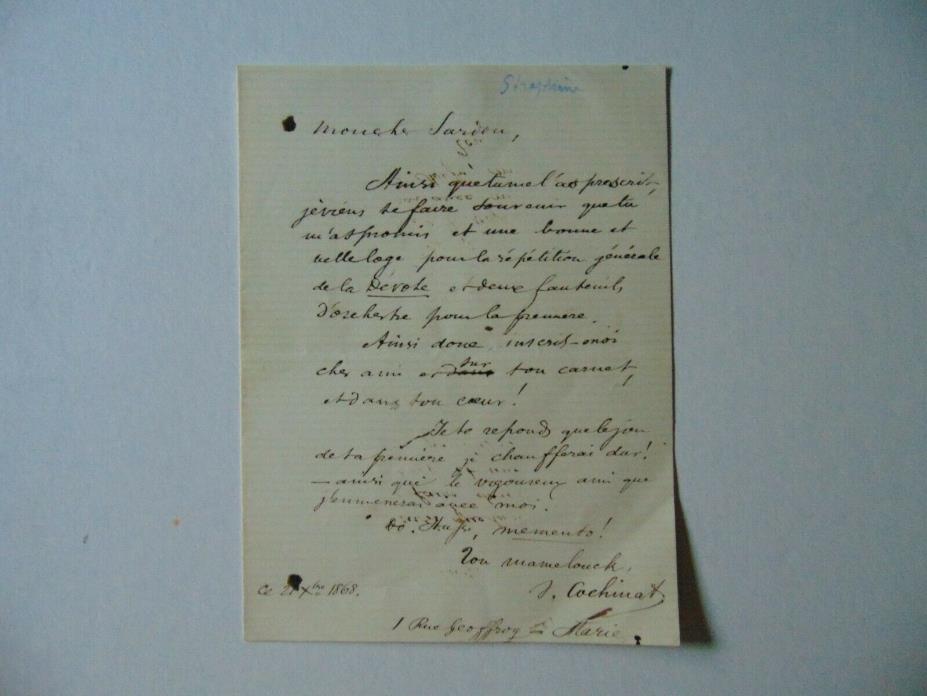 Séraphine
Mon cher Sardou,
Ainsi que tu me l'as prescrit,
je viens te faire souvenir que tu
m'as promis et une bonne et
belle loge pour la répétition générale
de la Dévote et deux fauteuils
d'orchestre pour la première.
Ainsi donc inscris-moi
cher ami et sur ton carnet,
et dans ton cœur!
Je te réponds que le jour
de ta première je chaufferai dur!
— ainsi que le vigoureux ami que
j'emmènerai avec moi.
memento!
Ton mamelouck,
V. Cochinat
Ce 21 Xbre 1868.
1 Rue Geoffroy Marie